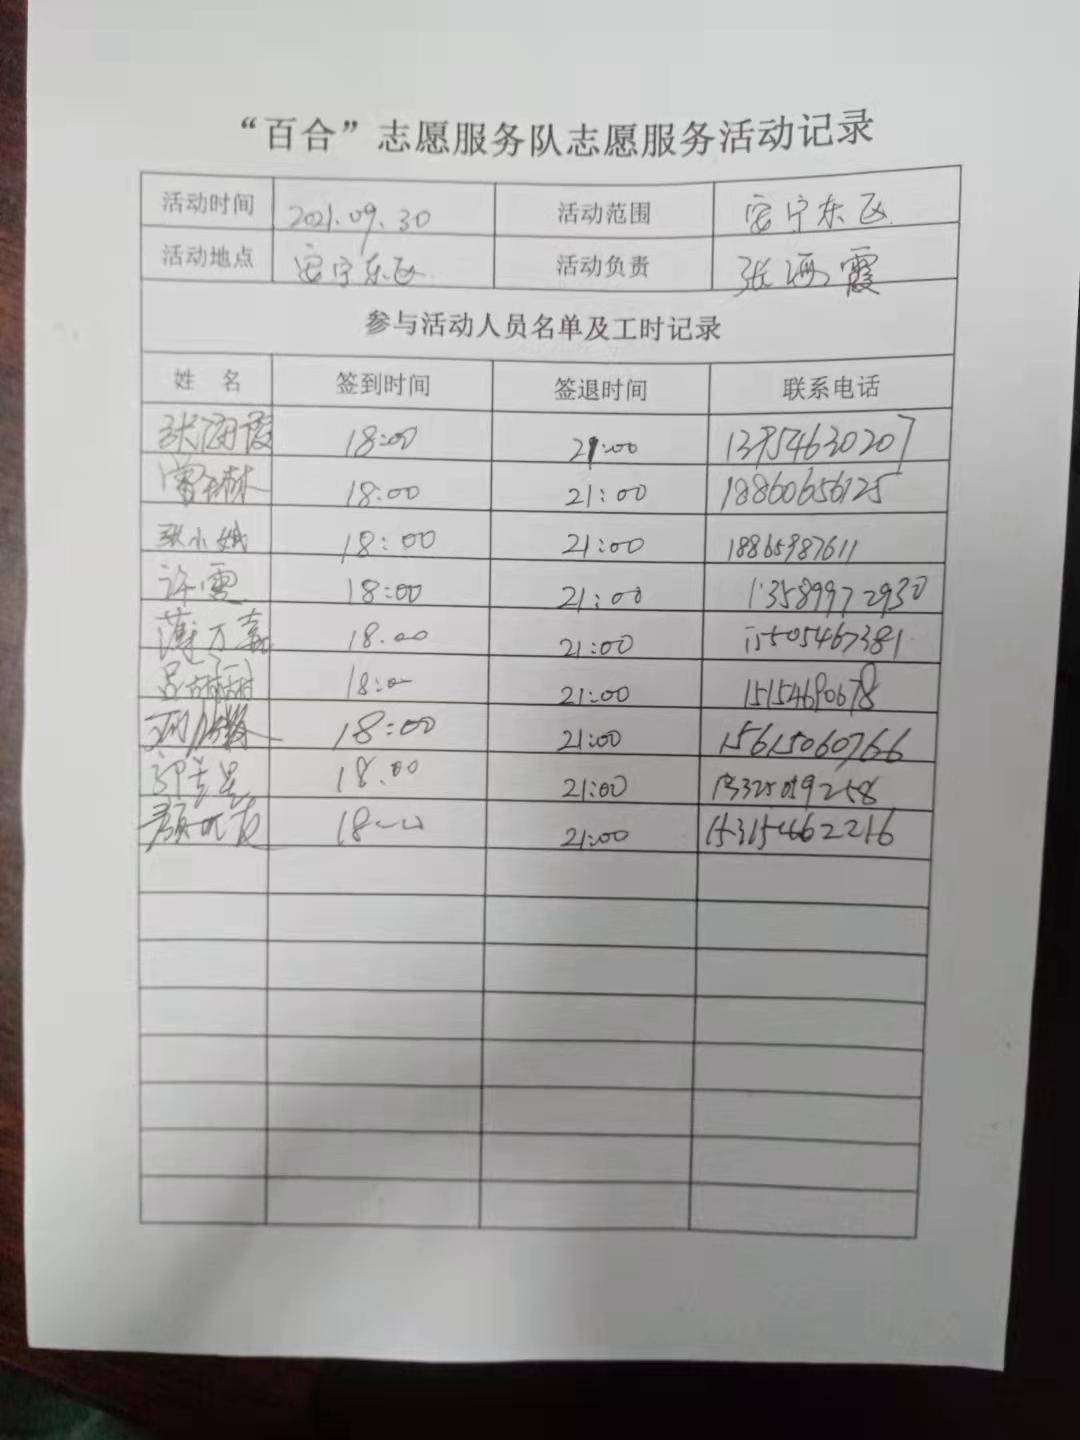 “百合”志愿服务队志愿服务活动记录
活动时间 2021.09.30 活动范围 安宁东区
活动地点 安宁东区 活动负责 张海霞
参与活动人员名单及工时记录
姓 名 签到时间 签退时间 联系电话
张海霞 18:00 21:00 13954630207
18:00 21:00 18860656125
张小娥 18:00 21:00 18865987611
许雪 18:00 21:00 13589972930
薄万嘉 18:00 21:00 15505467381
18:00 21:00 15154690678
18:00 21:00 15615060766
18:00 21:00
18:00 21:00 15315462216